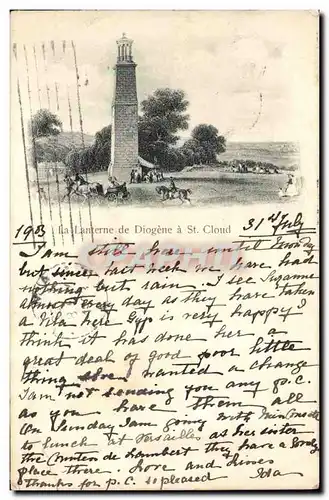 La Lanterne de Diogène à St. Cloud
1903
31st July
I am still here until Monday
but since last week we have had
nothing but rain. I see Suzanne
almost every day as they have taken
a Villa here Gyp is very happy I
think it has done her a
great deal of good poor little
thing she wanted a change
I am not sending you any p.c.
as you have them all
On Sunday I am going with
to lunch at Versailles as her sister
the de Lambert they have a lovely
place there. Love and kisses
thanks for p.c. so pleased Ida